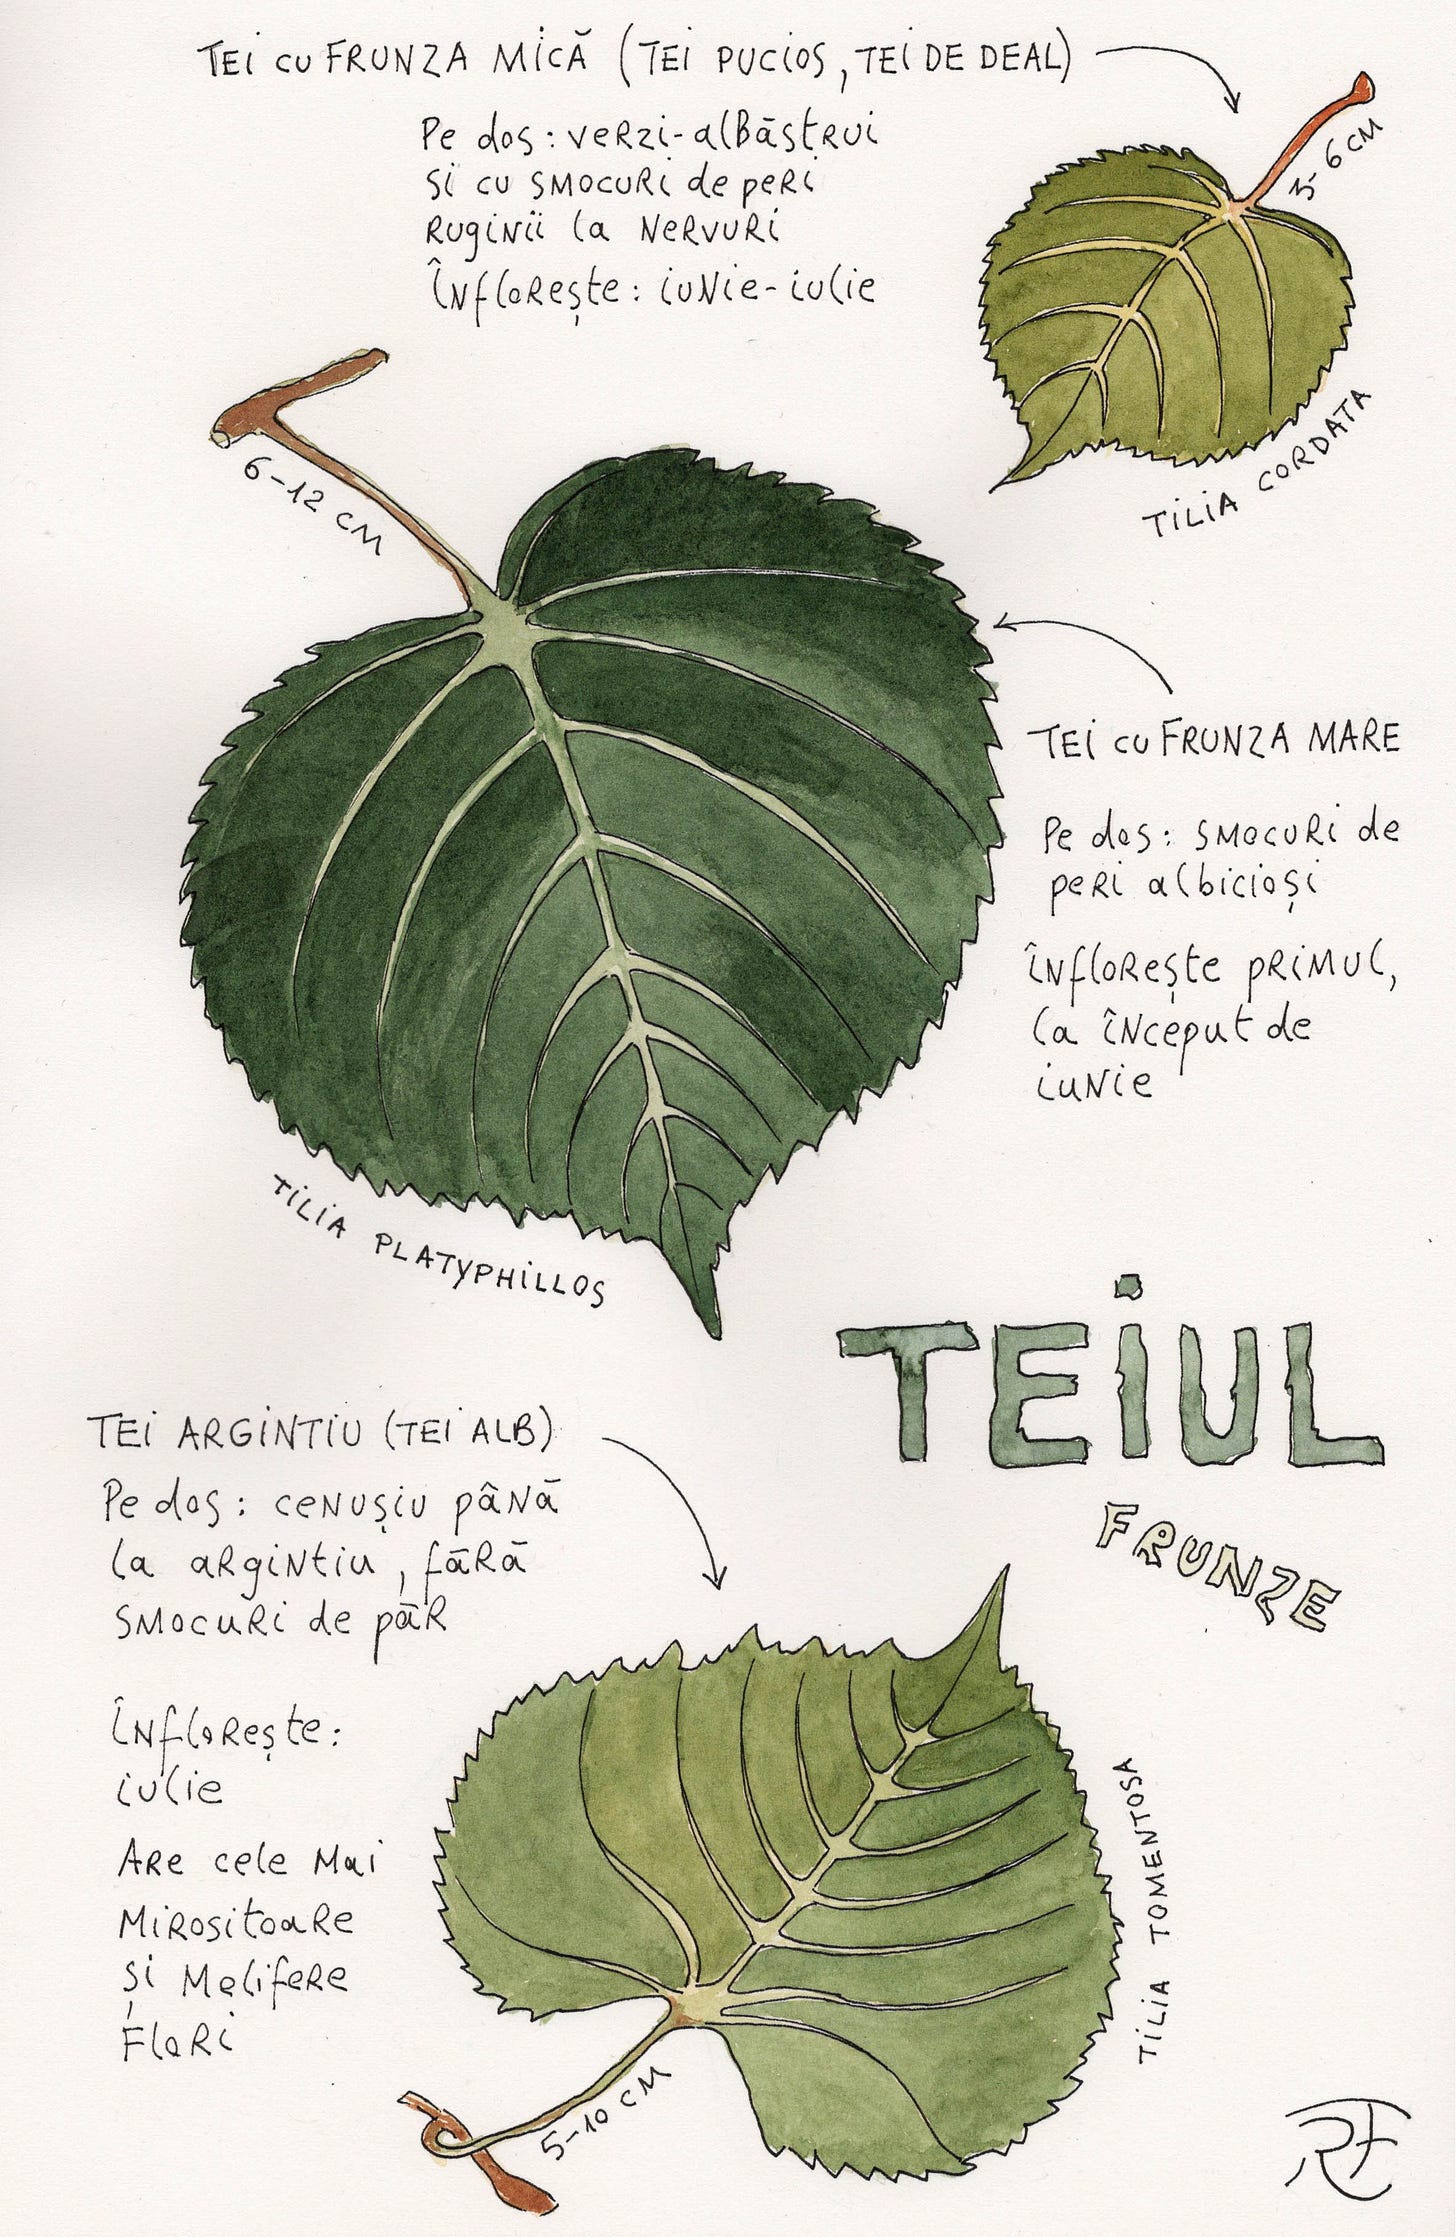 TEI CU FRUNZA MICĂ (TEI PUCIOS, TEI DE DEAL)
Pe dos: verzi-albăstrui
si cu smocuri de peri
ruginii la nervuri
Înflorește: iunie-iulie
3-6 CM
TILIA CORDATA
6-12 CM
TEI CU FRUNZA MARE
Pe dos: smocuri de
peri albicioși
Înflorește primul,
la început de
iunie
TILIA PLATYPHILLOS
TEIUL
FRUNZE
TEI ARGINTIU (TEI ALB)
Pe dos: cenușiu până
la argintiu, fără
smocuri de păr
Înflorește:
iulie
Are cele mai
mirositoare
și melifere
flori
TILIA TOMENTOSA
5-10 CM
RF